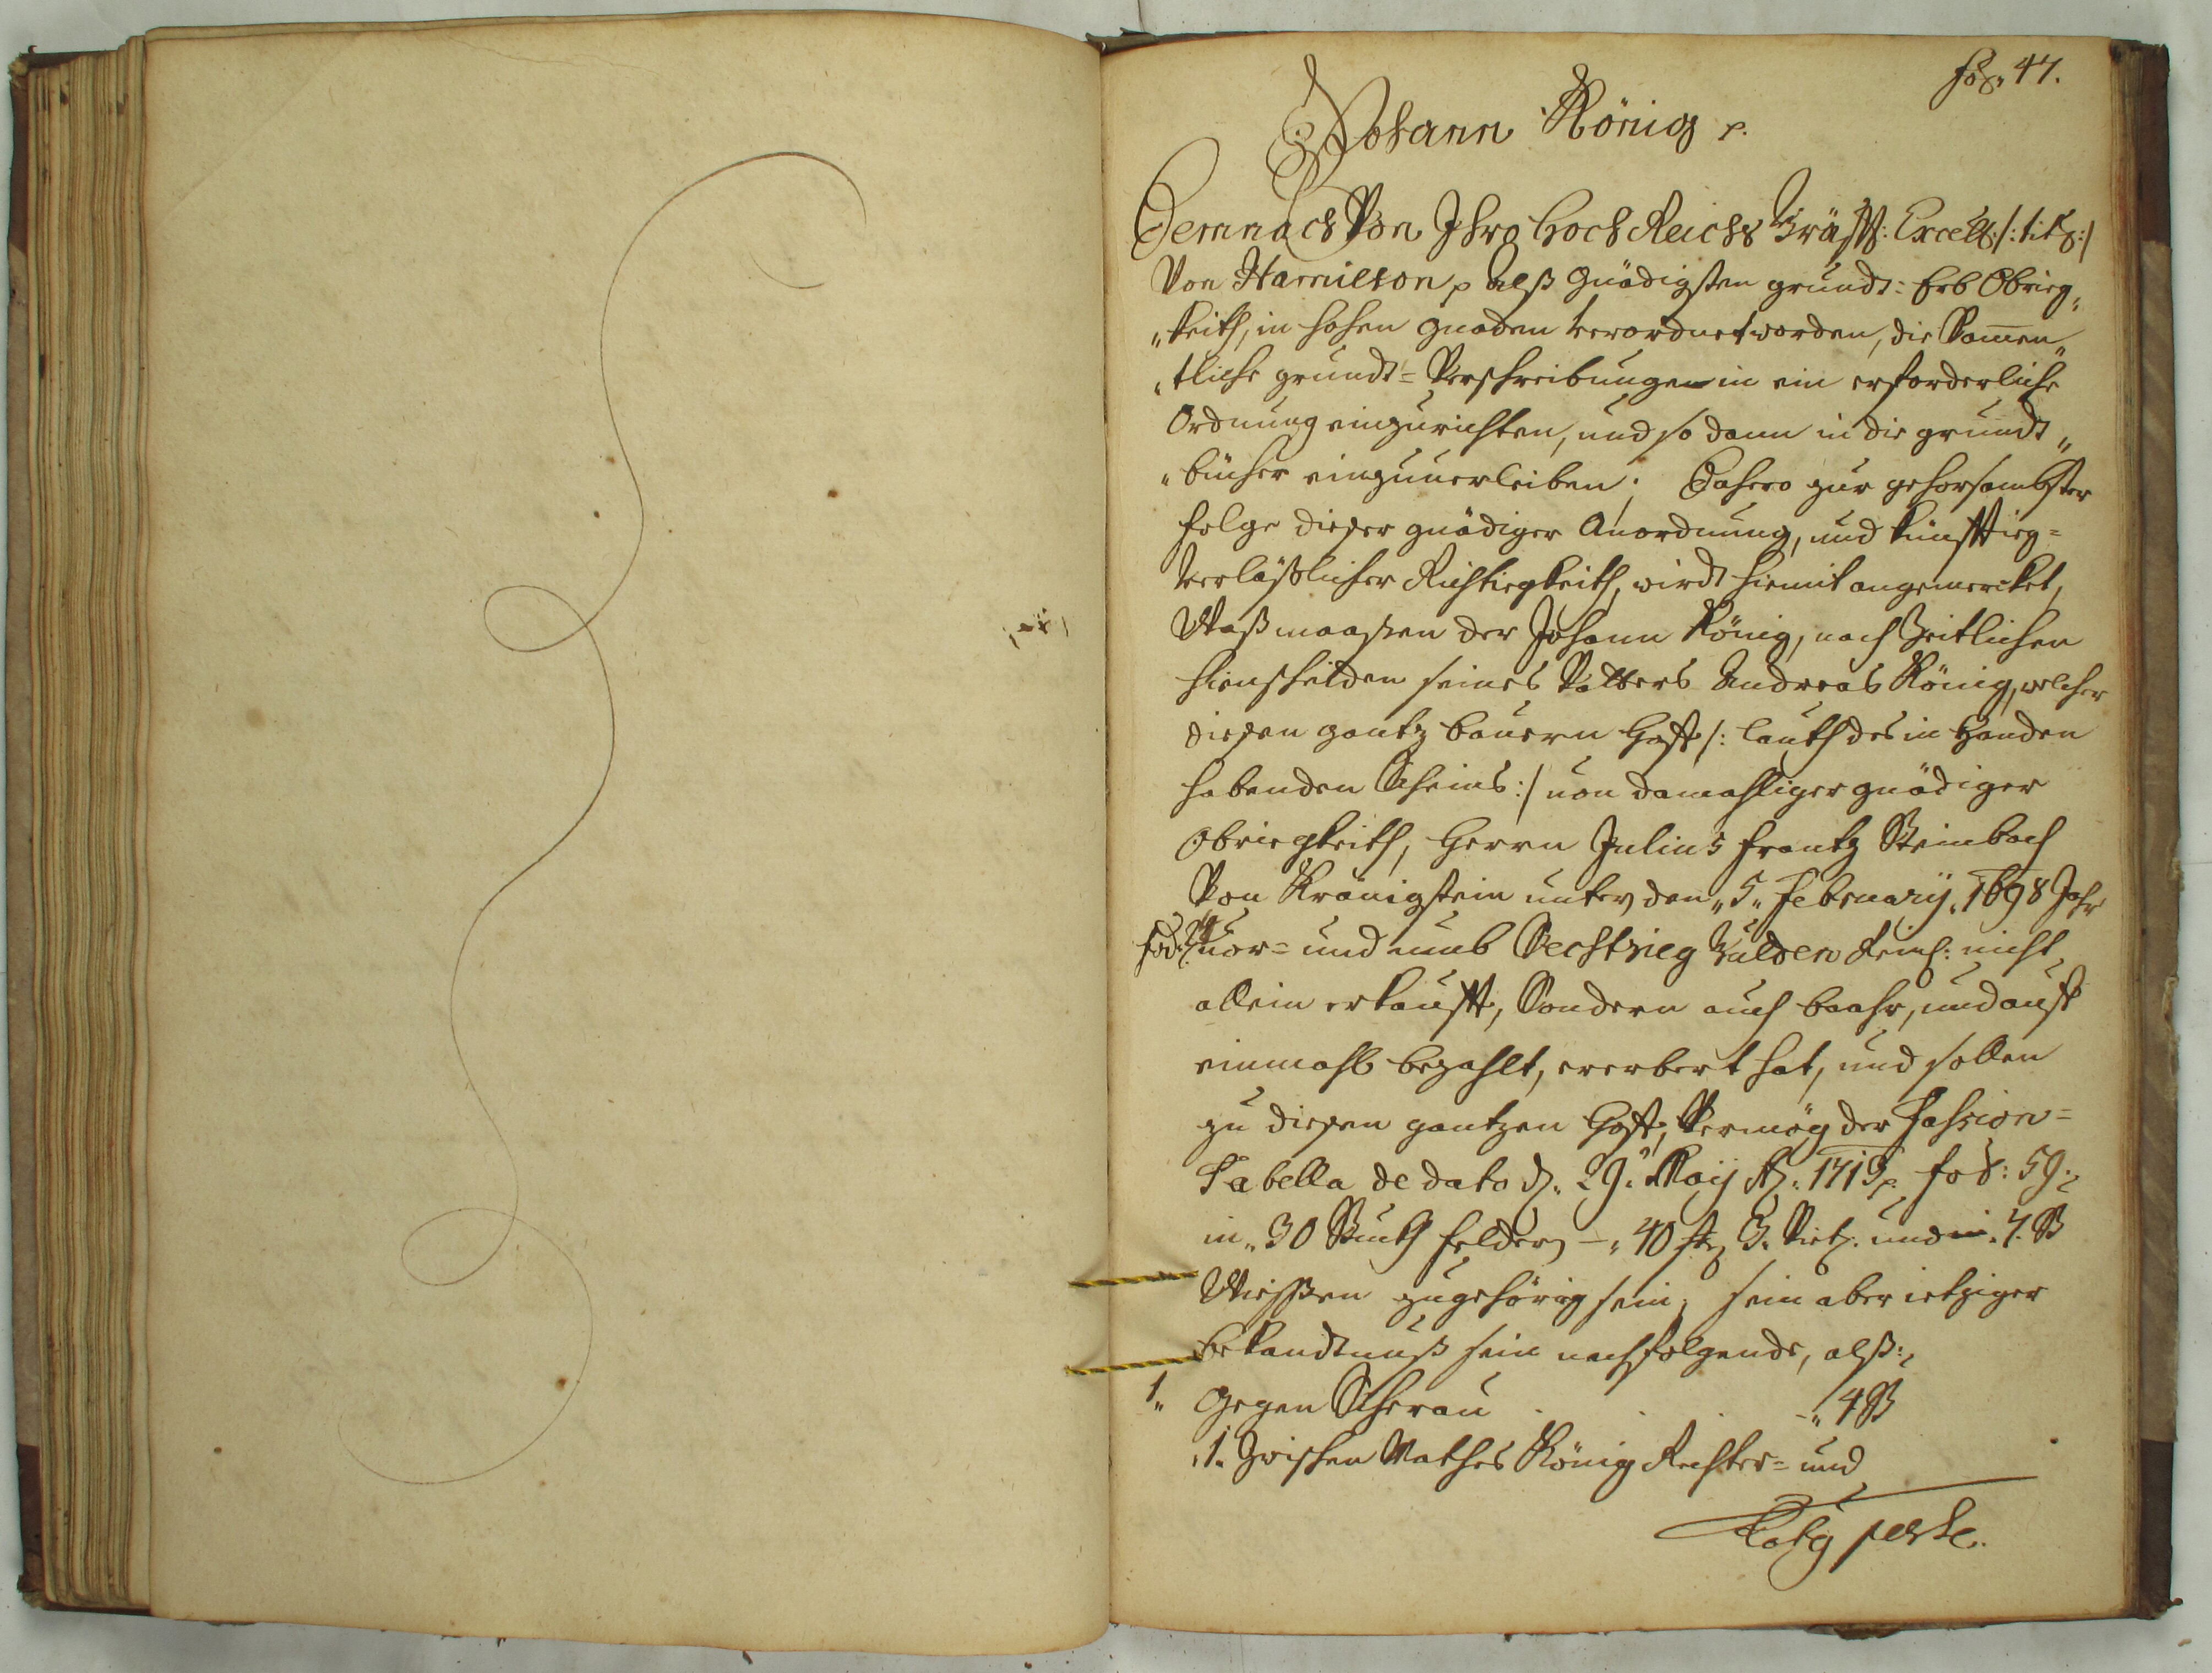 fol. 47.
Johann König p.
Demnach Von Ihro Hoch Reichs Gräffl: Excell: /: titl: /
Von Hamilton p alß Gnädigsten grundt- Erb Obrieg„
„keith, in hohen Gnaden verordnet worden, die
„tliche grundt- Verschreibungen in ein erforderliche
Ordnung einzurichten, und so dann in die grundt„
„bücher einzuverleiben; Dahero zur gehorsambster
folge dieser gnädiger Anordnung, und künfftieg-
verläßlicher Richtiegkeith, wirdt hiemit angemercket,
Waß maaßen der Johann König, nach Zeitlichen
hienscheiden seines Vatters Andreas König, welcher
diesen gantz bauern Hoff /: lauth des in Handen
habenden Scheins :/ von damahliger gnädiger
Obriegkeith, Herrn Julius Frantz Steinbach
Von Kranigstein unter den „5„ February, 1698 Jahr
vor- und umb Sechtzieg Gulden Reinl: nicht
allein erkaufft, Sondern auch baahr, und auff
einmahl bezahlt, ererbert hat, und sollen
zu diesen gantzen Hoff, Vermög der Fassion-
Tabella de dato d. 29. May A. 1713 p. fol: 59.
in „30 Stück felder „40 str 3. Virtl. und in „4. B
Wießen zugehörig sein; sein aber ietziger
bekandtnuß sein nachfolgende, alß:
1„ Gegen Scherau . . „4 B
„1. Zwischen Mathes König Richter- und